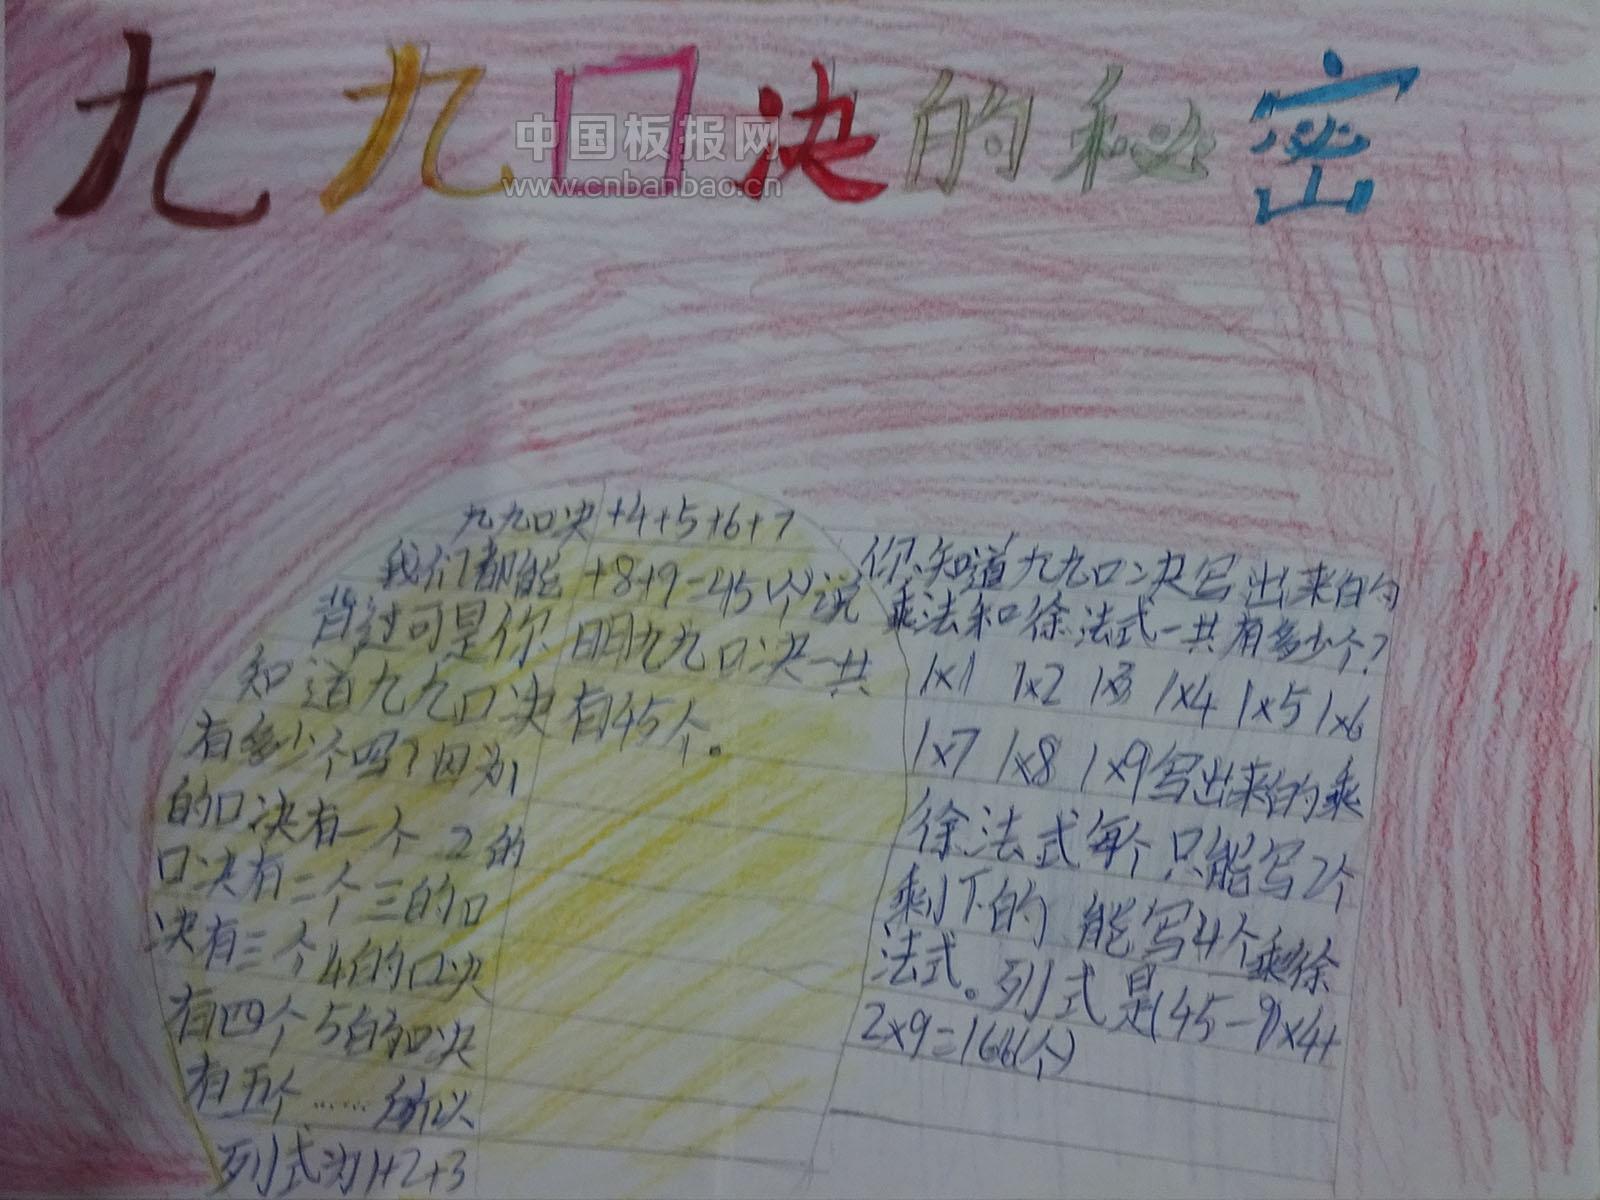 九九口决的秘密
中国板报网
www.cnbanbao.cn
九九口决
我们都能
背过可是你
知道九九口决
有多少个吗?因为1
的口决有一个 2的
口决有二个三的口
决有三个4的口决
有四个5的口决
有五个……所以
列式为1+2+3
+4+5+6+7
+8+9=45(个)说
明九九口决一共
有45个。
你知道九九口决写出来的
乘法和徐法式一共有多少个?
1×1 1×2 1×3 1×4 1×5 1×6
1×7 1×8 1×9写出来的乘
徐法式每个只能写2个
剩下的 能写4个乘徐
法式。列式是(45-9)×4+
2×9=166(个)